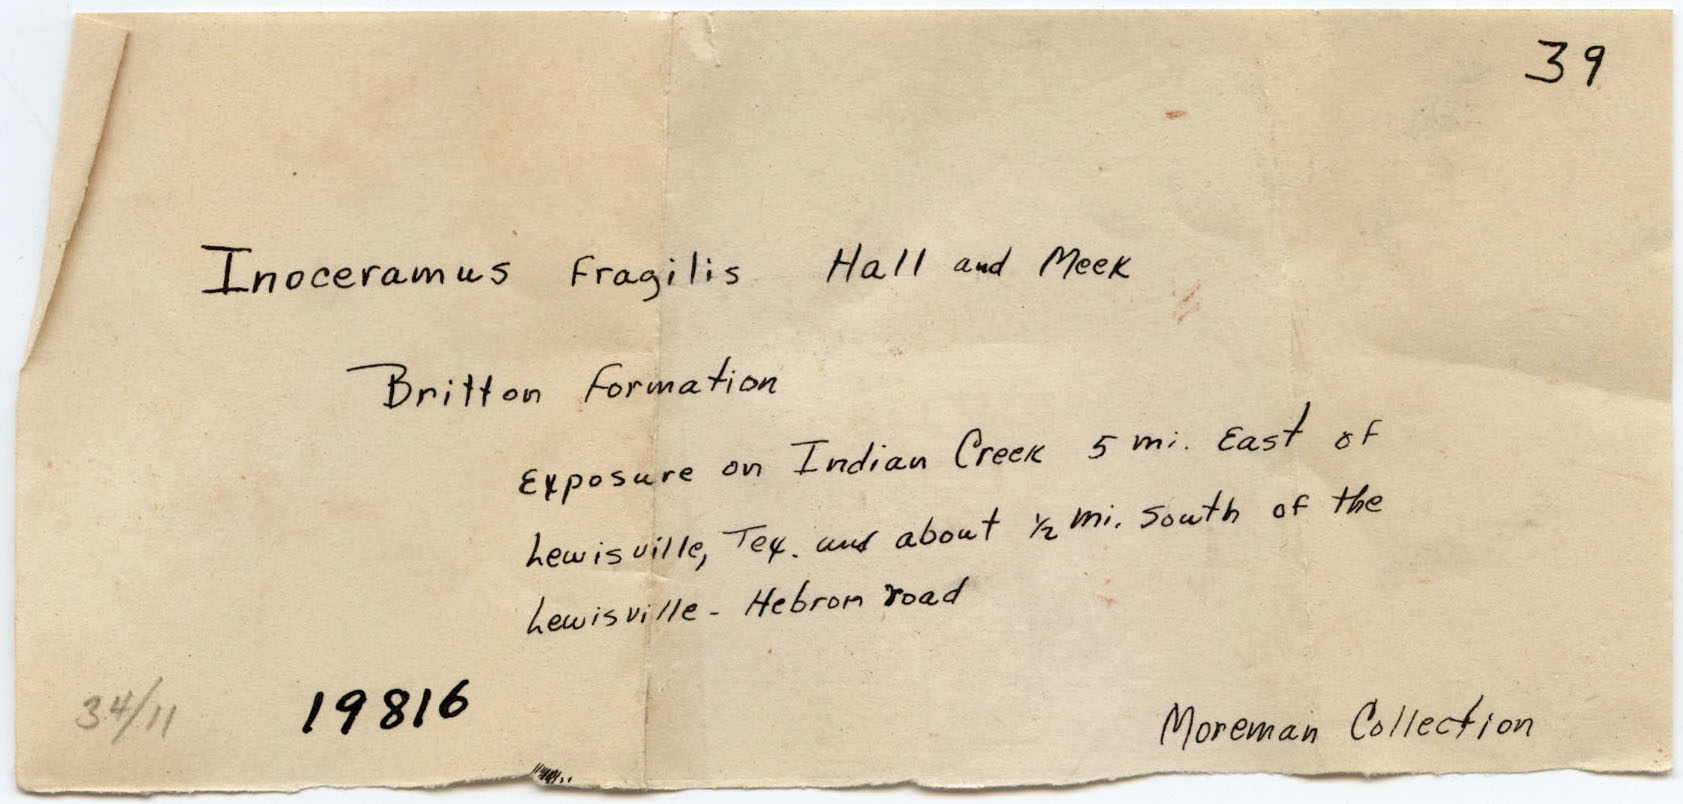 39
Inoceramus fragilis Hall and Meek
Britton formation
Exposure on Indian Creek 5 mi. East of
Lewisville, Tex. and about ½ mi. South of the
Lewisville - Hebron road
34/11 19816 Moreman Collection